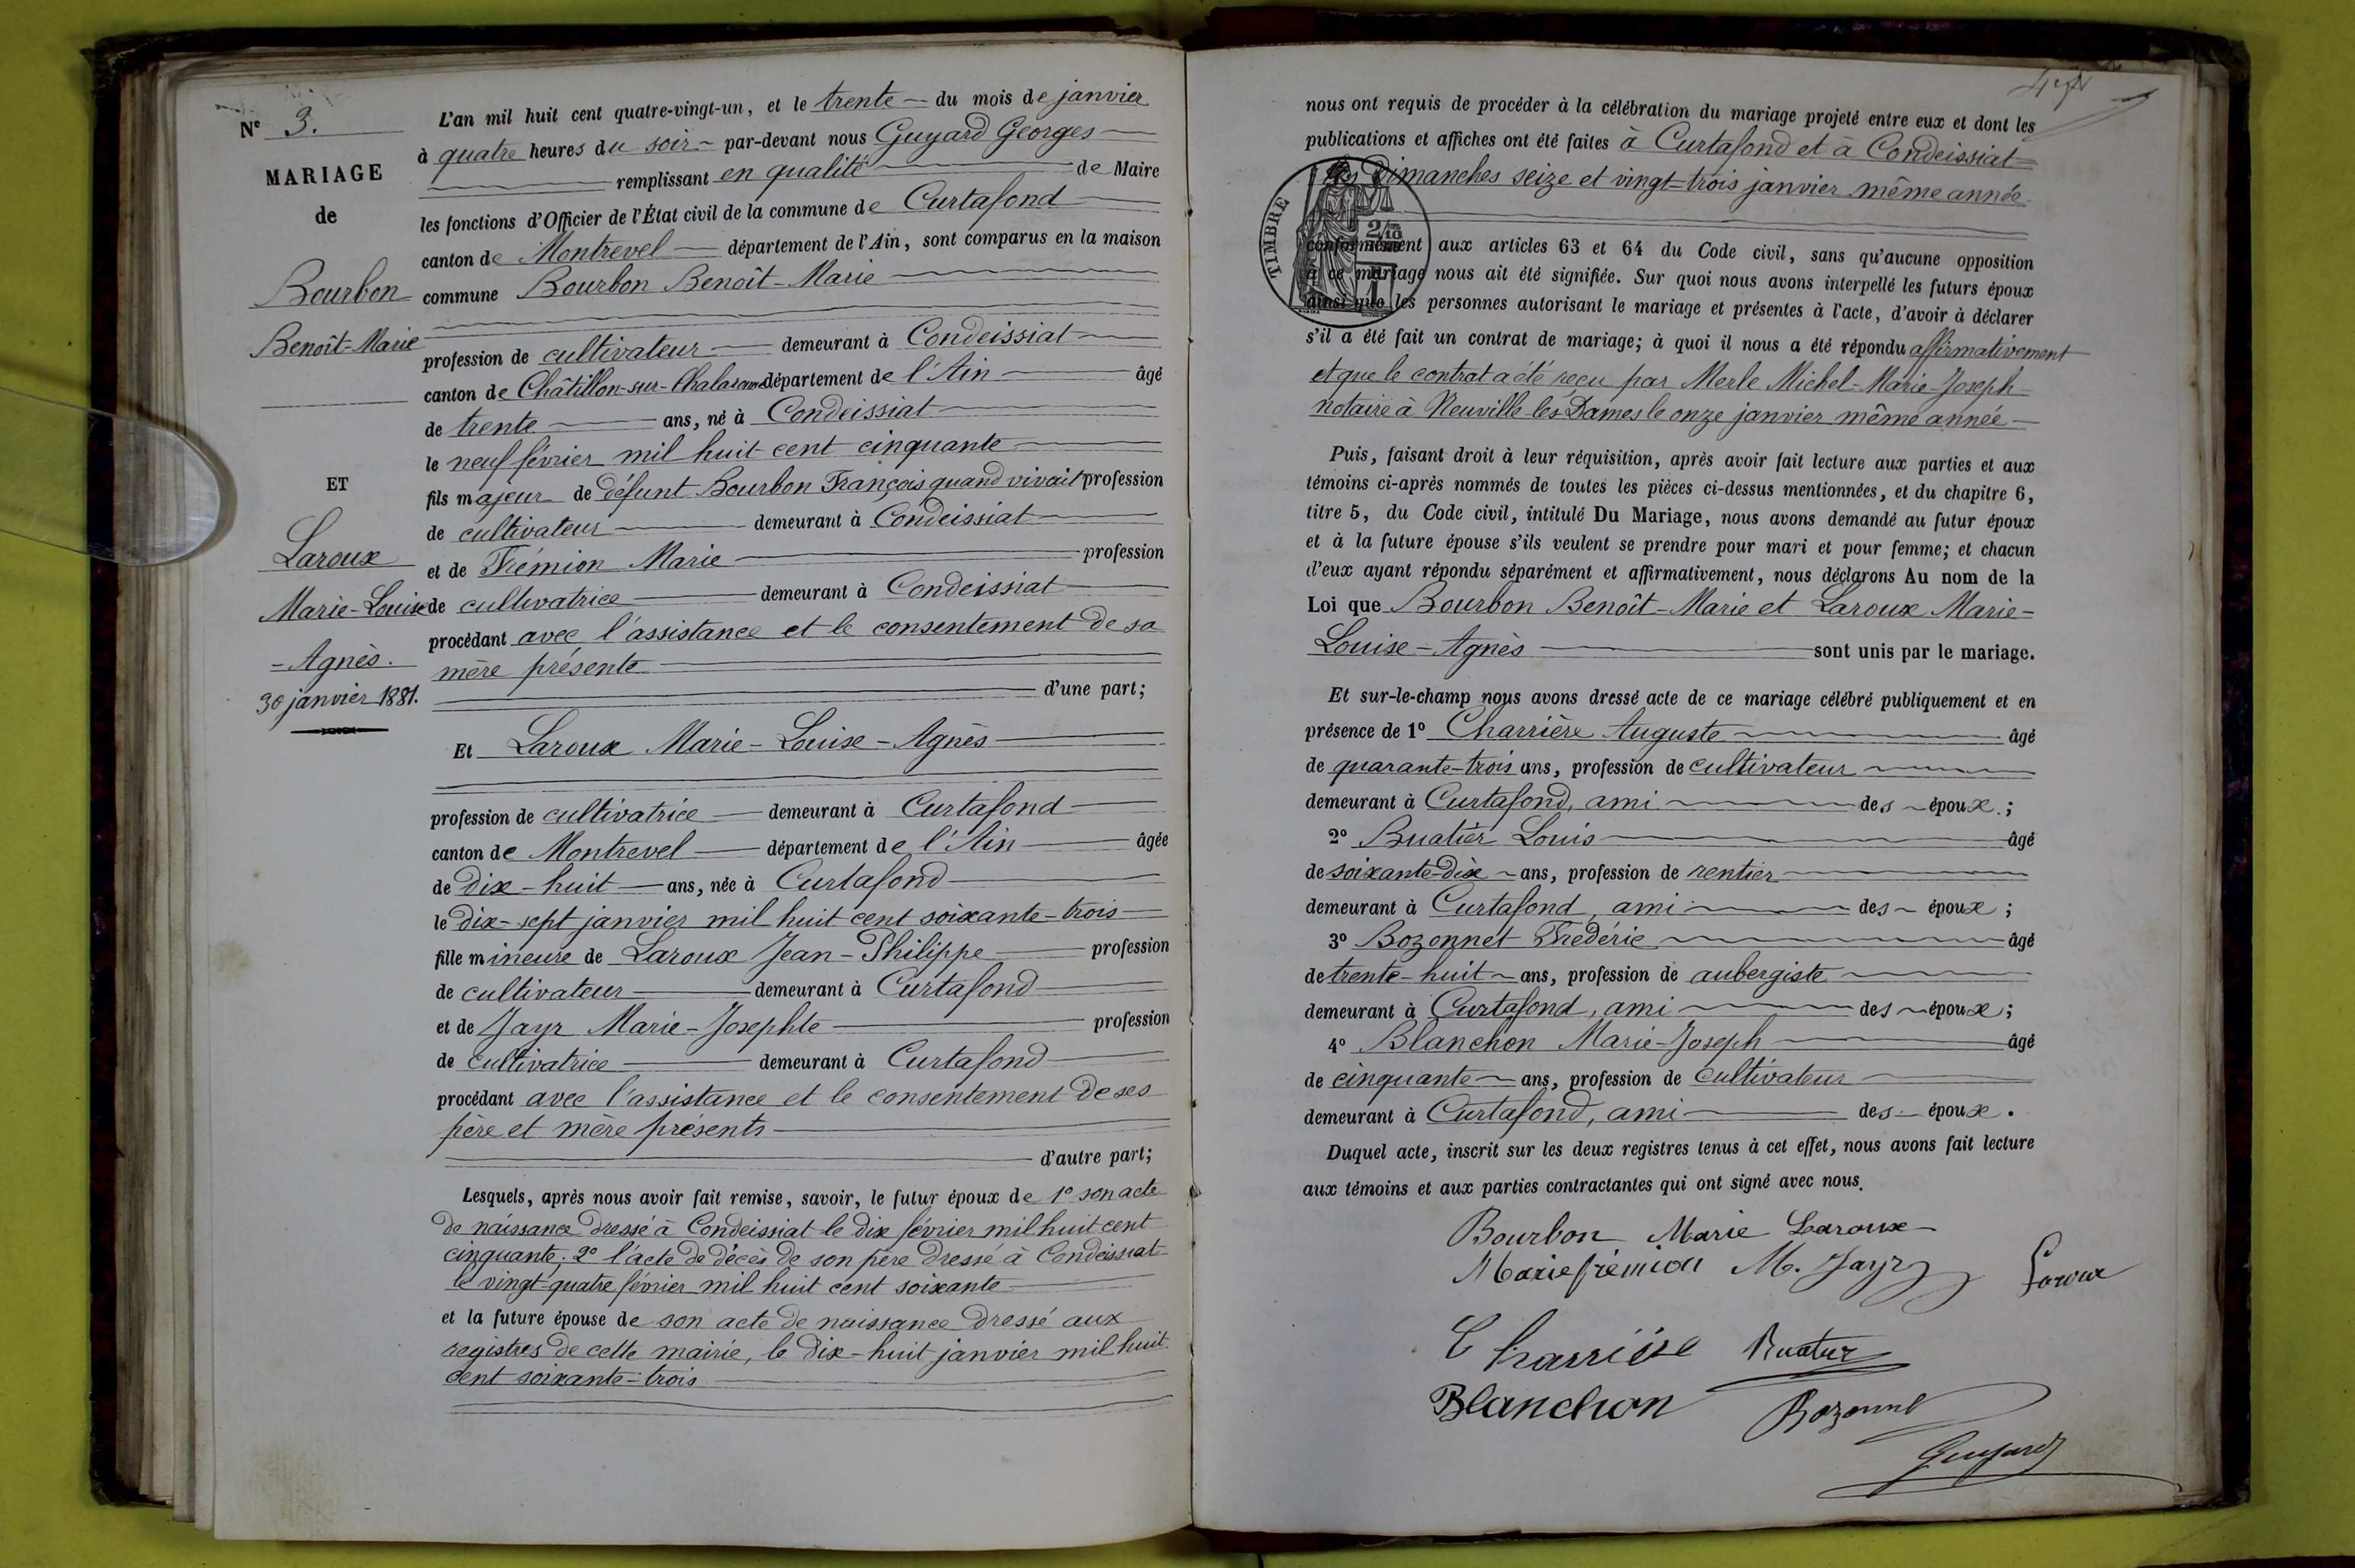 N° 3.
MARIAGE
de
Bourbon
Benoît-Marie
ET
Laroux
Marie-Louise
-Agnès.
30 janvier 1881.
L'an mil huit cent quatre-vingt-un, et le trente du mois de janvier
à quatre heures du soir par-devant nous Guyard Georges
remplissant en qualité de Maire
les fonctions d'Officier de l'État civil de la commune de Curtafond
canton de Montrevel département de l'Ain, sont comparus en la maison
commune Bourbon Benoît-Marie
profession de cultivateur demeurant à Condeissiat
canton de Châtillon-sur-Chalaronne département de l'Ain âgé
de trente ans, né à Condeissiat
le neuf février mil huit cent cinquante
fils majeur de défunt Bourbon François quand vivait profession
de cultivateur demeurant à Condeissiat
et de Frémion Marie profession
de cultivatrice demeurant à Condeissiat
procédant avec l'assistance et le consentement de sa
mère présente
d'une part;
Et Laroux Marie-Louise-Agnès
profession de cultivatrice demeurant à Curtafond
canton de Montrevel département de l'Ain âgée
de dix-huit ans, née à Curtafond
le dix-sept janvier mil huit cent soixante-trois
fille mineure de Laroux Jean-Philippe profession
de cultivateur demeurant à Curtafond
et de Jayr Marie-Josephte profession
de cultivatrice demeurant à Curtafond
procédant avec l'assistance et le consentement de ses
père et mère présents
d'autre part;
Lesquels, après nous avoir fait remise, savoir, le futur époux de 1° son acte
de naissance dressé à Condeissiat le dix février mil huit cent
cinquante; 2° l'acte de décès de son père dressé à Condeissiat
le vingt-quatre février mil huit cent soixante
et la future épouse de son acte de naissance dressé aux
registres de cette mairie, le dix-huit janvier mil huit
cent soixante-trois
nous ont requis de procéder à la célébration du mariage projeté entre eux et dont les
publications et affiches ont été faites à Curtafond et à Condeissiat
les Dimanches seize et vingt-trois janvier même année
TIMBRE
2/10
conformément aux articles 63 et 64 du Code civil, sans qu'aucune opposition
à ce mariage nous ait été signifiée. Sur quoi nous avons interpellé les futurs époux
ainsi que les personnes autorisant le mariage et présentes à l'acte, d'avoir à déclarer
s'il a été fait un contrat de mariage; à quoi il nous a été répondu affirmativement
et que le contrat a été reçu par Merle Michel-Marie-Joseph
notaire à Neuville les Dames le onze janvier même année
Puis, faisant droit à leur réquisition, après avoir fait lecture aux parties et aux
témoins ci-après nommés de toutes les pièces ci-dessus mentionnées, et du chapitre 6,
titre 5, du Code civil, intitulé Du Mariage, nous avons demandé au futur époux
et à la future épouse s'ils veulent se prendre pour mari et pour femme; et chacun
d'eux ayant répondu séparément et affirmativement, nous déclarons Au nom de la
Loi que Bourbon Benoît-Marie et Laroux Marie-
Louise-Agnès sont unis par le mariage.
Et sur-le-champ nous avons dressé acte de ce mariage célébré publiquement et en
présence de 1° Charrière Auguste âgé
de quarante-trois ans, profession de cultivateur
demeurant à Curtafond, ami des époux;
2° Buatier Louis âgé
de soixante-dix ans, profession de rentier
demeurant à Curtafond, ami des époux;
3° Bozonnet Frédéric âgé
de trente-huit ans, profession de aubergiste
demeurant à Curtafond, ami des époux;
4° Blanchon Marie-Joseph âgé
de cinquante ans, profession de cultivateur
demeurant à Curtafond, ami des époux.
Duquel acte, inscrit sur les deux registres tenus à cet effet, nous avons fait lecture
aux témoins et aux parties contractantes qui ont signé avec nous.
Bourbon Marie Laroux
Marie frémion M. Jayr Laroux
Charrière Buatier
Blanchon Bozonnet
Guyard